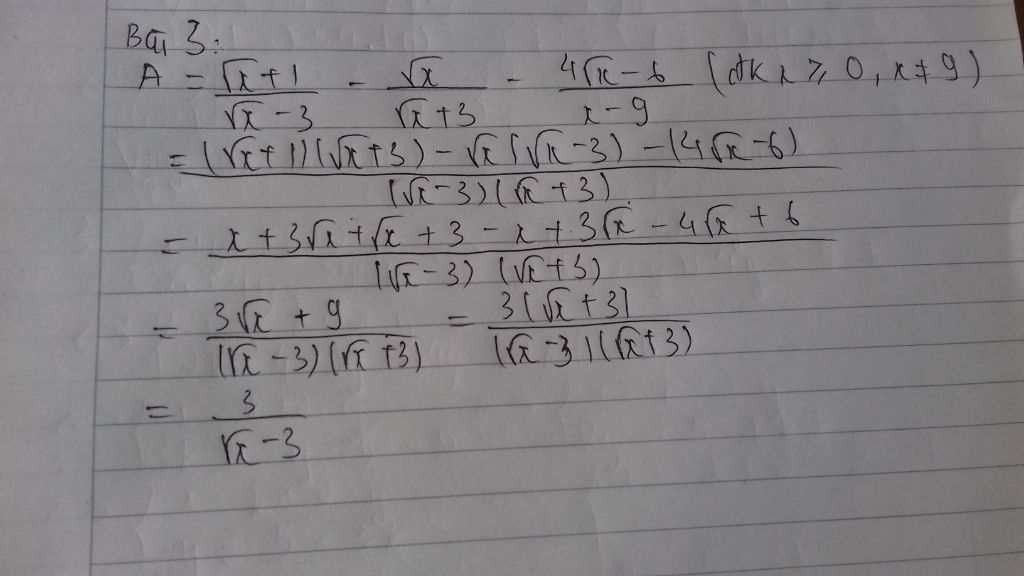 Bài 3:
A = (√x + 1)/(√x - 3) - √x/(√x + 3) - (4√x - 6)/(x - 9) (đk x ⩾ 0, x ≠ 9)
= ((√x + 1)(√x + 3) - √x(√x - 3) - (4√x - 6))/((√x - 3)(√x + 3))
= (x + 3√x + √x + 3 - x + 3√x - 4√x + 6)/((√x - 3)(√x + 3))
= (3√x + 9)/((√x - 3)(√x + 3)) = 3(√x + 3)/((√x - 3)(√x + 3))
= 3/(√x - 3)